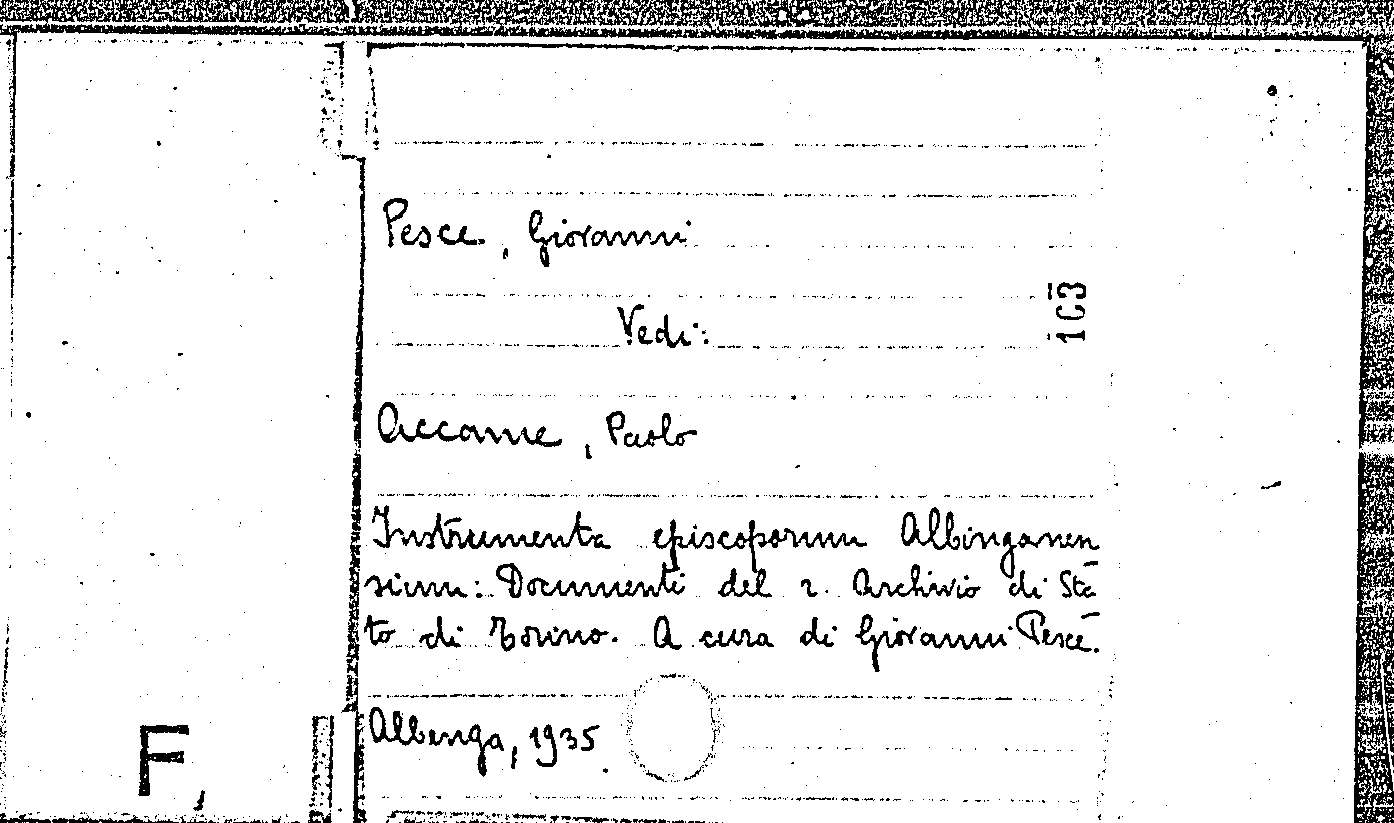 Pesce, Giovanni
103
Vedi:
Accame, Paolo
Instrumenta episcoporum Albinganen
sium: Documenti del r. Archivio di Sta
to di Torino. A cura di Giovanni Pesce.
Albenga, 1935
F,